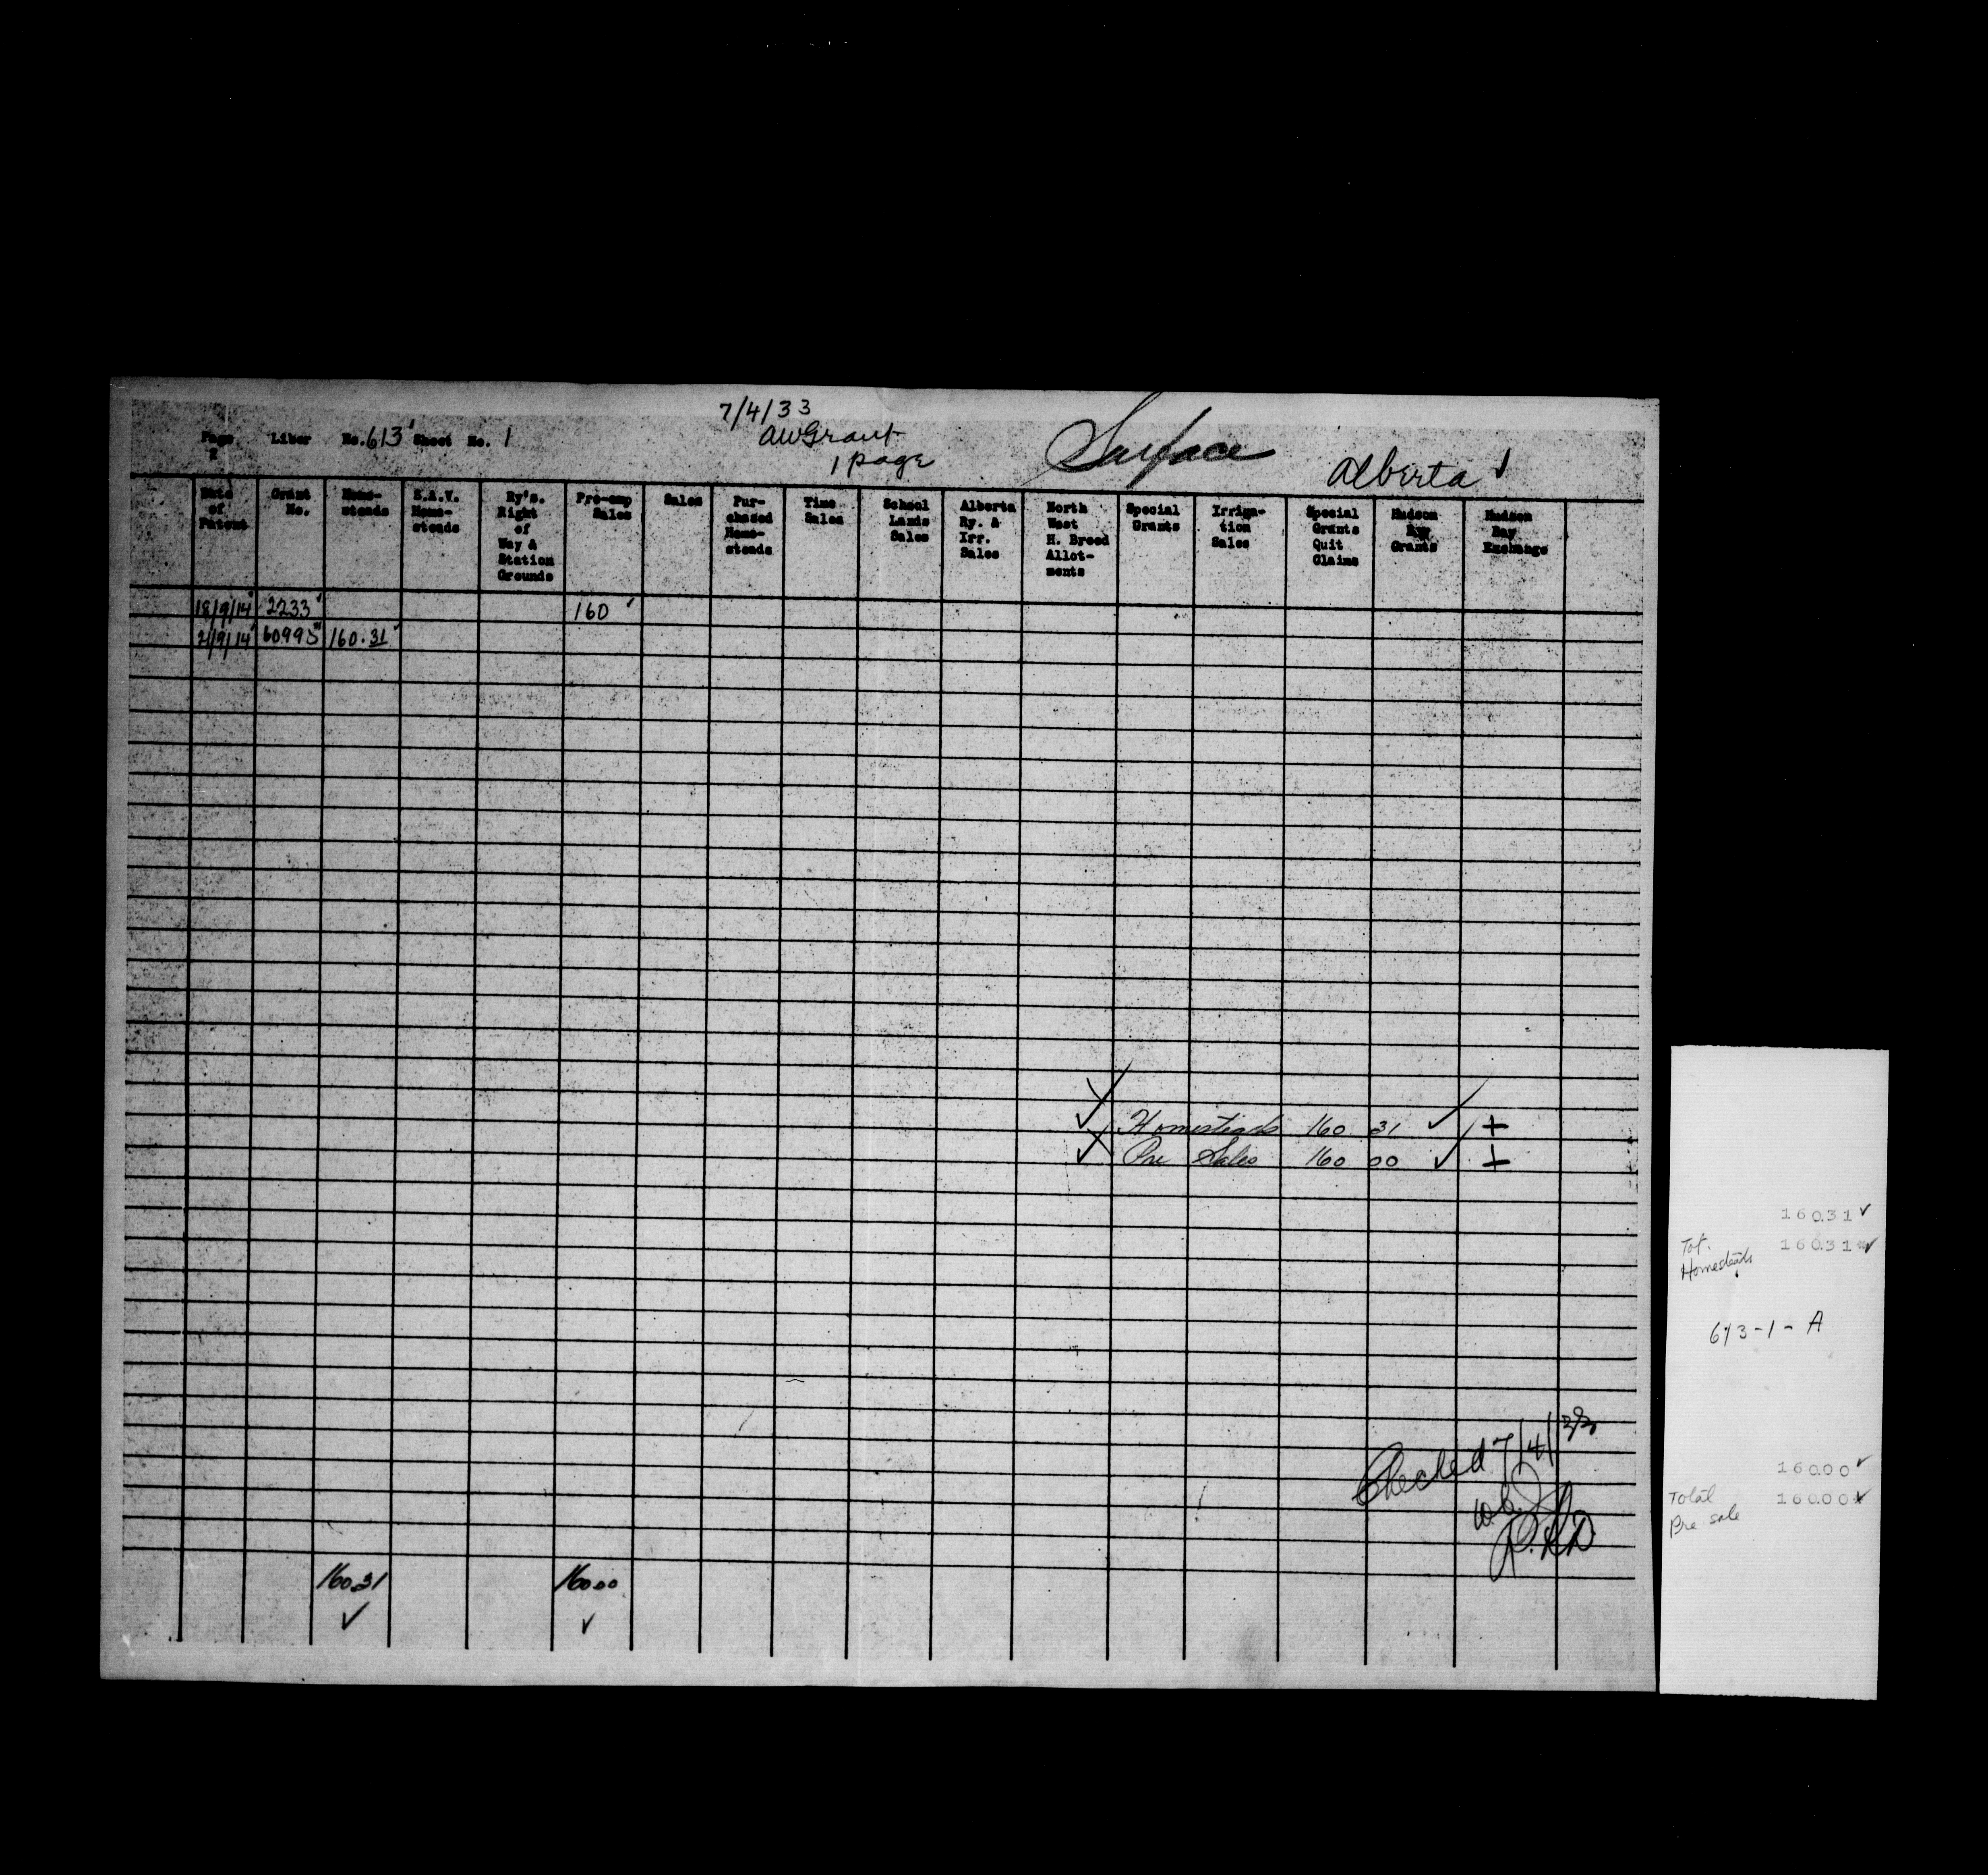 7/4/33
AWGrant
1 page
Surface
Alberta
Page Liber No. 613 Sheet No. 1
Date of Patent
Grant No.
Home-steads
S.A.V. Home-steads
Ry's. Right of Way & Station Grounds
Pre-emp Sales
Sales
Pur-chased Home-steads
Time Sales
School Lands Sales
Alberta Ry. & Irr. Sales
North West H. Breed Allot-ments
Special Grants
Irriga-tion Sales
Special Grants Quit Claims
Hudson Bay Grants
Hudson Bay Exchange
18/9/14 2233 160
2/9/14 160.31
Homesteads 160 31
Pre Sales 160 00
Checked 7/4/33
160.31 160.00
160.31
Tot. 160.31*
Homesteads
613-1-A
160.00
Total 160.00*
Pre sale